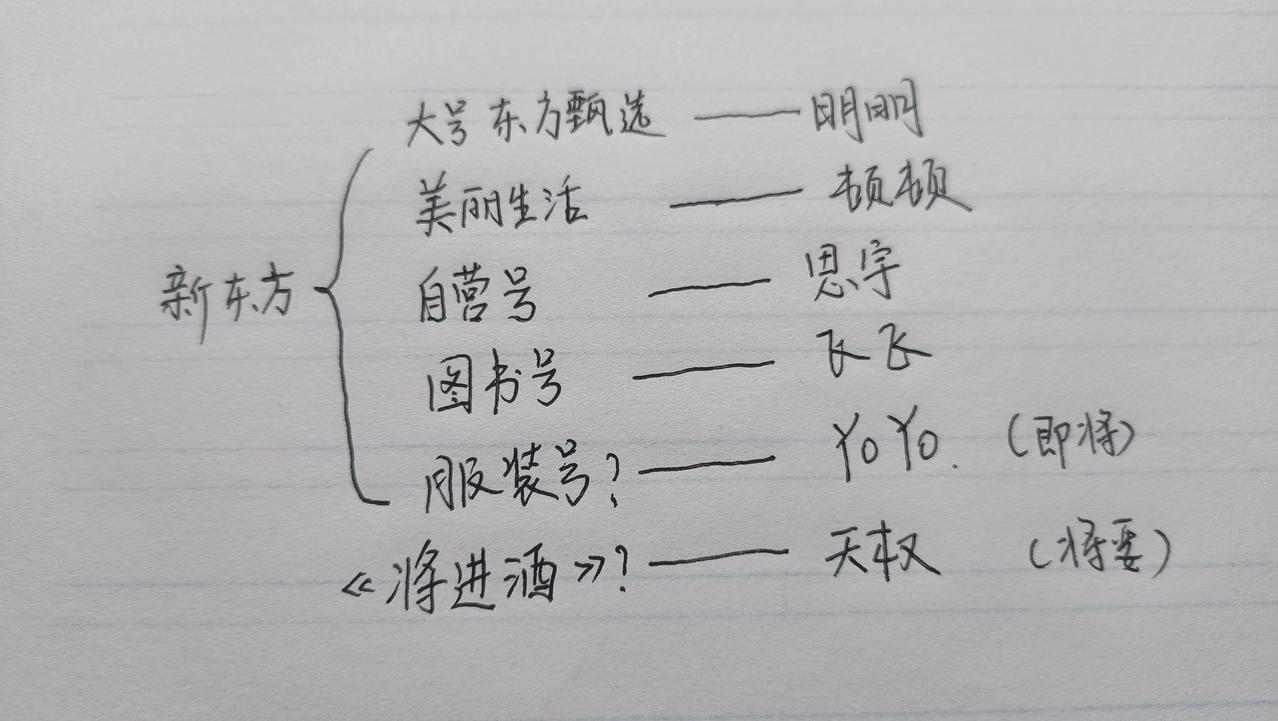 大号东方甄选 —— 明明
美丽生活 —— 顿顿
自营号 —— 思宇
新东方
图书号 —— 飞飞
服装号? —— YoYo. (即将)
《将进酒》? —— 天权 (将要)